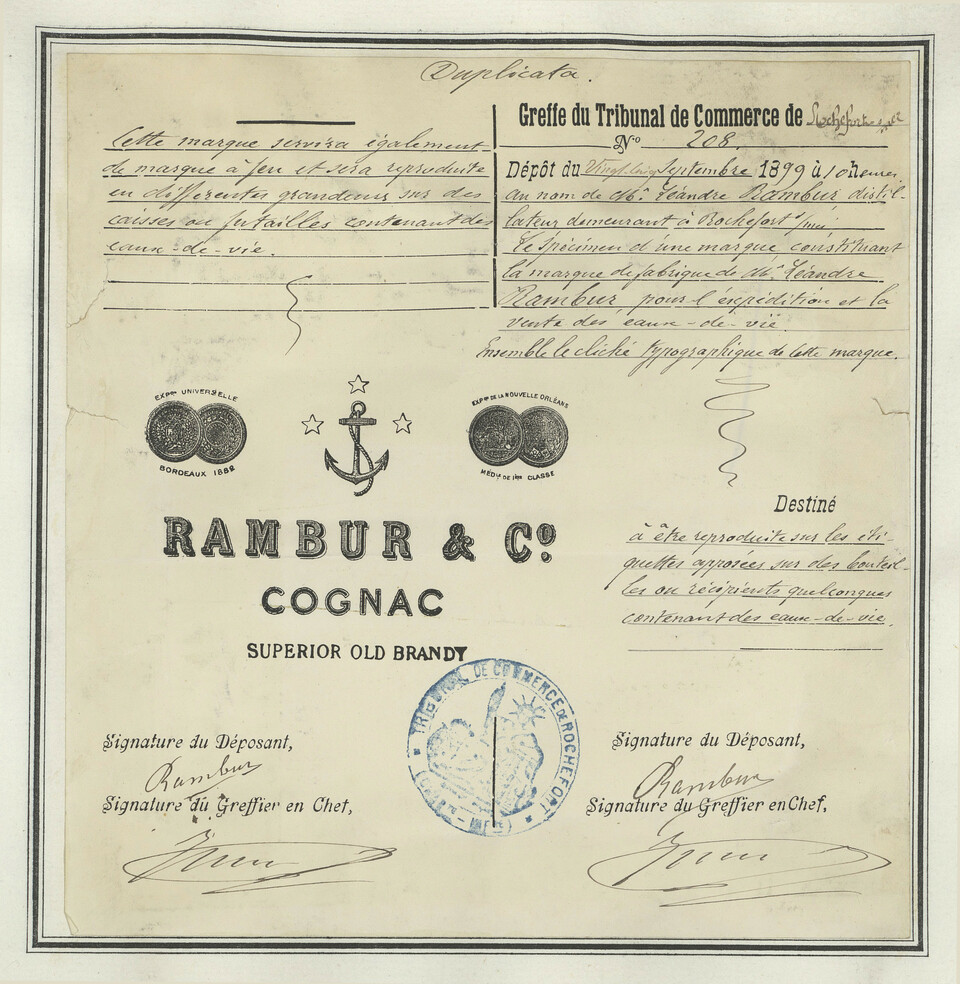 Duplicata.
Cette marque servira également
de marque à feu et sera reproduite
en différentes grandeurs sur des
caisses ou futailles contenant des
eaux-de-vie.
Greffe du Tribunal de Commerce de Rochefort
No 208.
Dépôt du Vingt Septembre 1899 à 10 heures
au nom de Mr. Léandre Rambur distil-
lateur demeurant à Rochefort s/mer
Le spécimen d'une marque constituant
la marque de fabrique de Mr. Léandre
Rambur pour l'expédition et la
vente des eaux-de-vie.
Ensemble le cliché typographique de cette marque.
EXPon UNIVERSELLE
BORDEAUX 1882
EXPon DE LA NOUVELLE ORLÉANS
MÉDle DE 1ère CLASSE
RAMBUR & Co.
COGNAC
SUPERIOR OLD BRANDY
Destiné
à être reproduite sur les éti-
quettes apposées sur des bouteil-
les ou récipients quelconques
contenant des eaux-de-vie.
TRIBUNAL DE COMMERCE DE ROCHEFORT
Signature du Déposant,
Rambur
Signature du Greffier en Chef,
Signature du Déposant,
Rambur
Signature du Greffier en Chef,